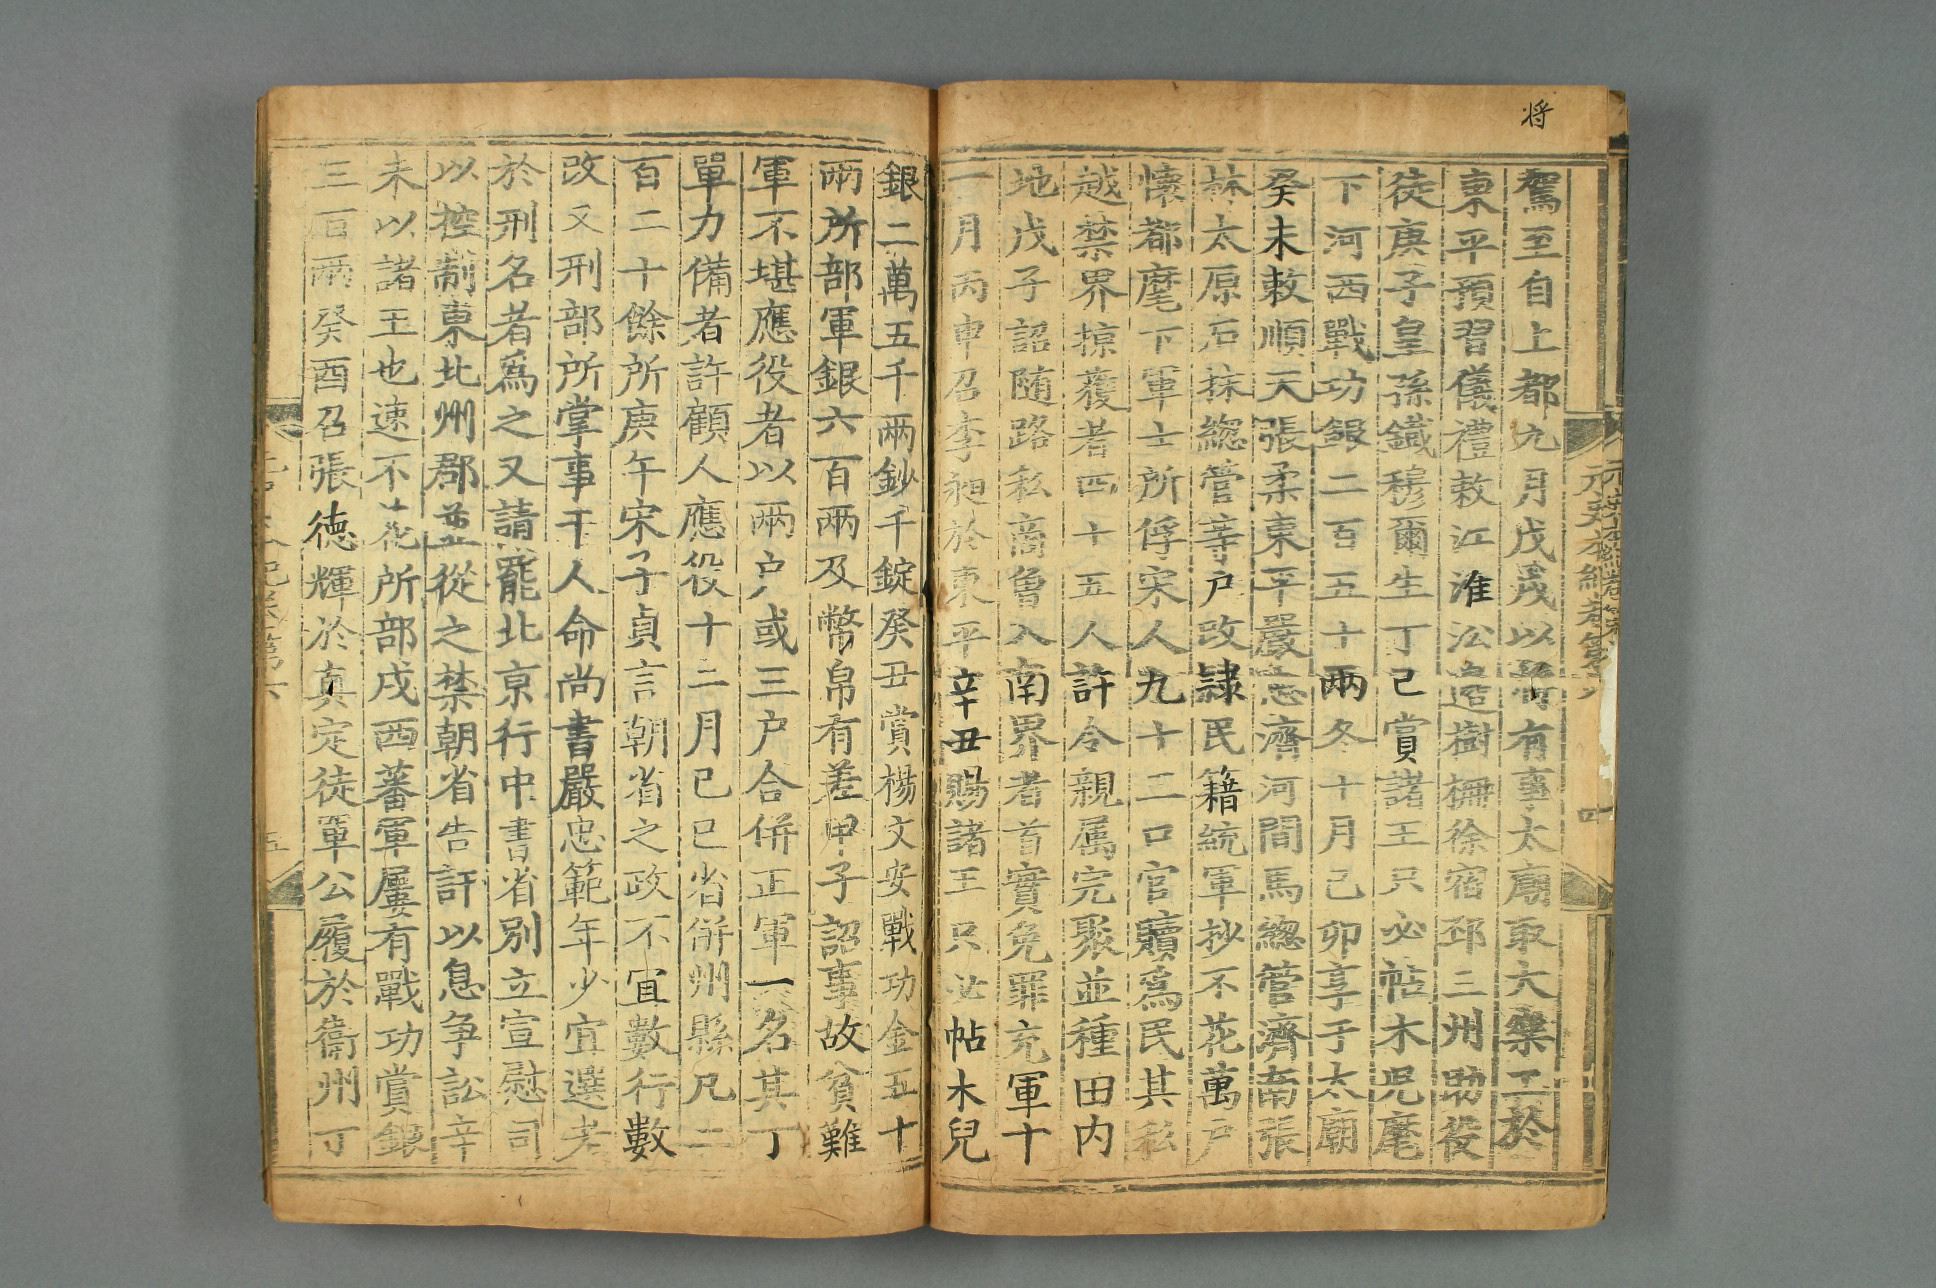 将
駕至自上都九月戊戌以將有事太廟取大樂工於
東平預習儀禮敕江淮沿邊樹柵徐宿邳三州助役
徒庚子皇孫鐵穆爾生丁巳賞諸王只必帖木児麾
下河西戰功銀二百五十兩冬十月己卯享于太廟
癸未敕順天張柔東平嚴忠濟河間馬緫管濟南張
林太原石抹緫管等户改隷民籍統軍抄不花萬户
懐都麾下軍士所俘宋人九十二口官贖爲民其私
越禁界掠獲者四十五人許令親属完聚並種田内
地戊子詔随路私商曾入南界者首實免罪充軍十
一月丙申召李昶於東平辛丑賜諸王只必帖木兒
銀二萬五千兩鈔千錠癸丑賞楊文安戰功金五十
兩所部軍銀六百兩及幣帛有差甲子詔事故貧難
軍不堪應役者以兩户或三户合併正軍一名其丁
單力備者許顧人應役十二月己巳省併州縣凡二
百二十餘所庚午宋子貞言朝省之政不宜數行數
改又刑部所掌事干人命尚書嚴忠範年少宜選老
於刑名者爲之又請罷北京行中書省别立宣慰司
以控制東北州郡並從之禁朝省告訐以息争訟辛
未以諸王也速不花所部戍西蕃軍屢有戰功賞銀
三百兩癸酉召張徳輝於真定徒單公履於衞州丁
元史本紀卷第六
四
五